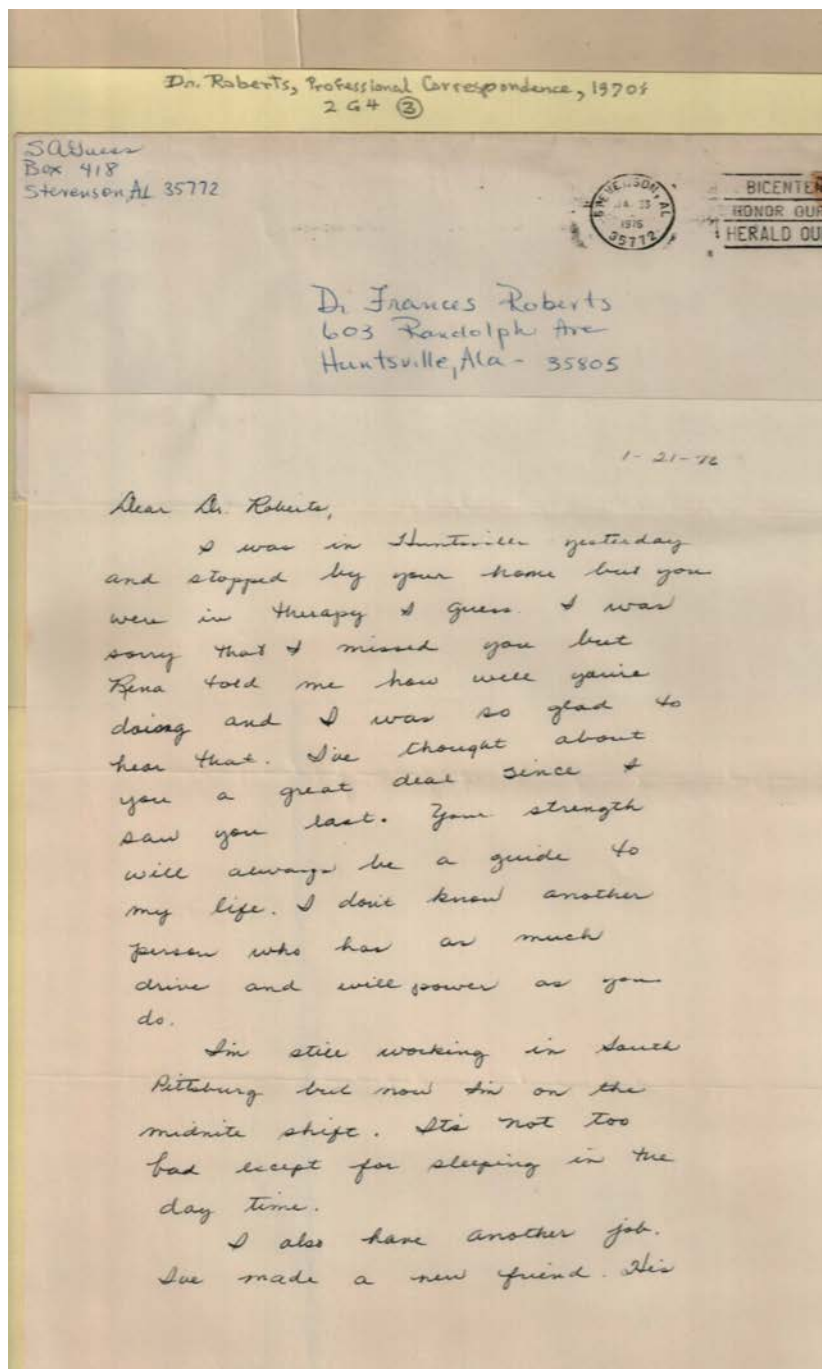 Dr. Roberts, Professional Correspondence, 1970s
2 G4 ③
S A Guess
Box 418
Stevenson, AL 35772
STEVENSON, AL
1976
35772
BICENTEN
HONOR OUR
HERALD OU
Dr Frances Roberts
603 Randolph Ave
Huntsville, Ala - 35805
1-21-76
Dear Dr. Roberts,
I was in Huntsville yesterday
and stopped by your home but you
were in therapy I guess. I was
sorry that I missed you but
Rena told me how well you're
doing and I was so glad to
hear that. I've thought about
you a great deal since I
saw you last. Your strength
will always be a guide to
my life. I don't know another
person who has as much
drive and will power as you
do.
I'm still working in South
Pittsburg but now I'm on the
midnite shift. It's not too
bad except for sleeping in the
day time.
I also have another job.
I've made a new friend. His